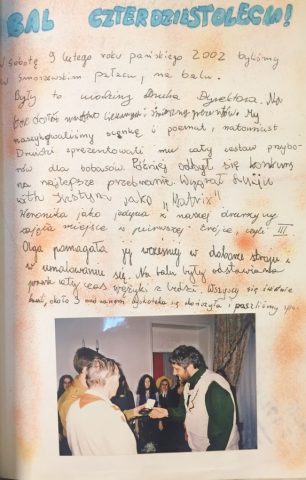 BAL CZTERDZIESTOLECIA!
W sobotę 9 lutego roku pańskiego 2002 byliśmy
w Smoszewskim pałacu, na balu.
Były to urodziny Druha Dyrektora. Na
mnóstwo ciekawych i
My
scenkę i poemat, natomiast
Druhowie sprezentowali mu cały zestaw przybo-
rów dla bobasów. Później odbył się konkurs
na najlepsze przebranie. Wygrał
with Justyn jako "Matrix"
Weronika jako jedyna z naszej drużyny
zajęła miejsce w pierwszej trójce, czyli III.
Olga pomagała jej wcześniej w dobraniu stroju i
w umalowaniu się. Na balu były odstawiane
cały czas wężyki z ludzi. Wszyscy się świetnie
bawi, około 3 nad ranem dyskoteka się skończyła i poszliśmy spać.